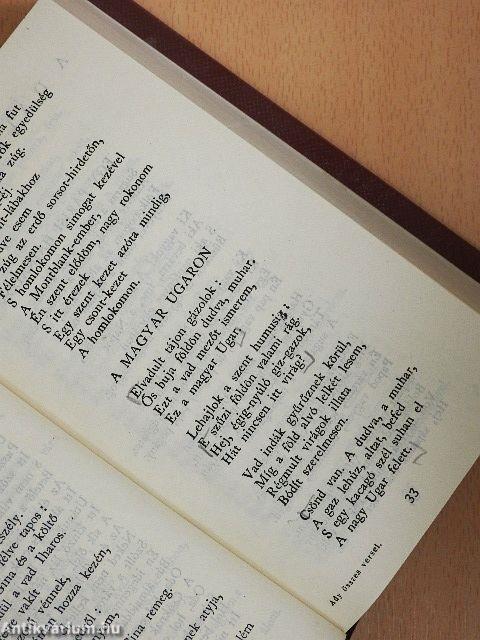 na fut
ők egyedülség
a zúg.
éj.
nt-lábakhoz
ve csem
zúg az erdő sorsot-hirdetőn,
Félelmesen.
S homlokomon simogat kezével
A Montblank-ember,
Én szent elődöm, nagy rokonom
S itt érezek
Egy szent kezet azóta mindig,
Egy csont-kezet
A homlokomon.
A MAGYAR UGARON
Elvadult tájon gázolok:
Ős buja földön dudva, muhar.
Ezt a vad mezőt ismerem,
Ez a magyar Ugar.
Lehajlok a szent humusig:
E szűzi földön valami rág.
Hej, égig-nyúló giz-gazok,
Hát nincsen itt virág?
Vad indák gyűrűznek körül,
Míg a föld alvó lelkét lesem,
Régmult virágok illata
Bódít szerelmesen.
Csönd van. A dudva, a muhar,
A gaz lehúz, altat, befed
S egy kacagó szél suhan el
A nagy Ugar felett.
Ady összes versei.
33
szély.
élve tapos:
nna és a költő
ül a vad lharos.
vénnek,
vakít
hozza kezén,
ina remeg-
nek anyja,
lém
Antikvarium.hu